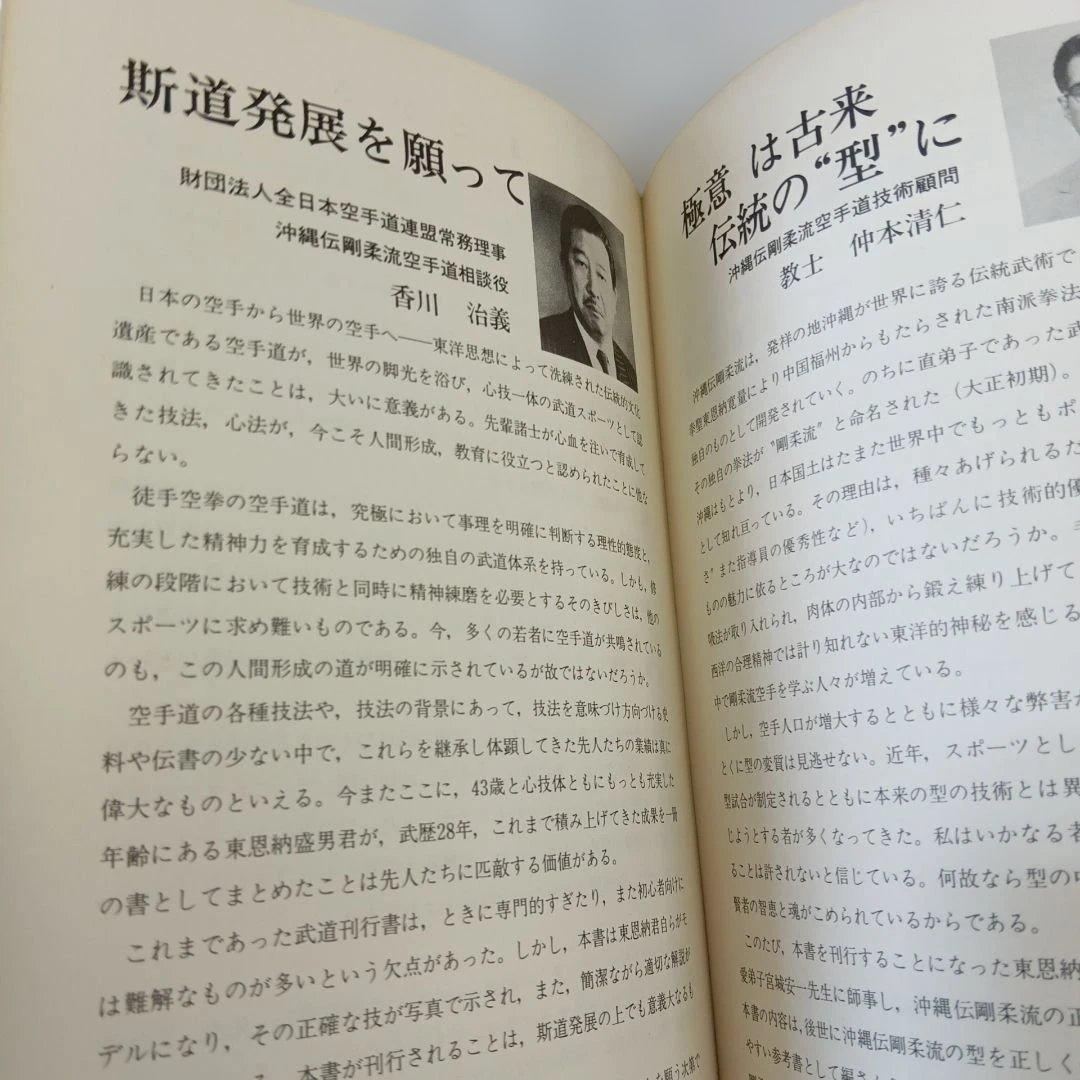 斯道発展を願って
財団法人全日本空手道連盟常務理事
沖縄伝剛柔流空手道相談役
香川 治義
日本の空手から世界の空手へ——東洋思想によって洗練された伝統的文化
遺産である空手道が，世界の脚光を浴び，心技一体の武道スポーツとして認
識されてきたことは，大いに意義がある。先輩諸士が心血を注いで育成して
きた技法，心法が，今こそ人間形成，教育に役立つと認められたことに他な
らない。
徒手空拳の空手道は，究極において事理を明確に判断する理性的態度と，
充実した精神力を育成するための独自の武道体系を持っている。しかも，修
練の段階において技術と同時に精神練磨を必要とするそのきびしさは，他の
スポーツに求め難いものである。今，多くの若者に空手道が共鳴されている
のも，この人間形成の道が明確に示されているが故ではないだろうか。
空手道の各種技法や，技法の背景にあって，技法を意味づけ方向づける史
料や伝書の少ない中で，これらを継承し体顕してきた先人たちの業績は真に
偉大なものといえる。今またここに，43歳と心技体ともにもっとも充実した
年齢にある東恩納盛男君が，武歴28年，これまで積み上げてきた成果を一冊
の書としてまとめたことは先人たちに匹敵する価値がある。
これまであった武道刊行書は，ときに専門的すぎたり，また初心者向けに
は難解なものが多いという欠点があった。しかし，本書は東恩納君自らがモ
デルになり，その正確な技が写真で示され，また，簡潔ながら適切な解説が
る。本書が刊行されることは，斯道発展の上でも意義大なるも
を願う次第で
極意 は古来
伝統の“型”に
沖縄伝剛柔流空手道技術顧問
教士 仲本清仁
沖縄伝剛柔流は，発祥の地沖縄が世界に誇る伝統武術で
拳聖東恩納寛量により中国福州からもたらされた南派拳法
独自のものとして開発されていく。のちに直弟子であった武
その独自の拳法が“剛柔流”と命名された（大正初期）。
沖縄はもとより，日本国土はたまた世界中でもっともポ
として知れ亘っている。その理由は，種々あげられるた
さ”また指導員の優秀性など），いちばんに技術的優
ものの魅力に依るところが大なのではないだろうか。
吸法が取り入れられ，肉体の内部から鍛え練り上げて
西洋の合理精神では計り知れない東洋的神秘を感じる
中で剛柔流空手を学ぶ人々が増えている。
しかし，空手人口が増大するとともに様々な弊害が
とくに型の変質は見逃せない。近年，スポーツとし
型試合が制定されるとともに本来の型の技術とは異
じようとする者が多くなってきた。私はいかなる者
ることは許されないと信じている。何故なら型の中
賢者の智恵と魂がこめられているからである。
このたび，本書を刊行することになった東恩納
愛弟子宮城安一先生に師事し，沖縄伝剛柔流の正
本書の内容は，後世に沖縄伝剛柔流の型を正しく
やすい参考書として編さん